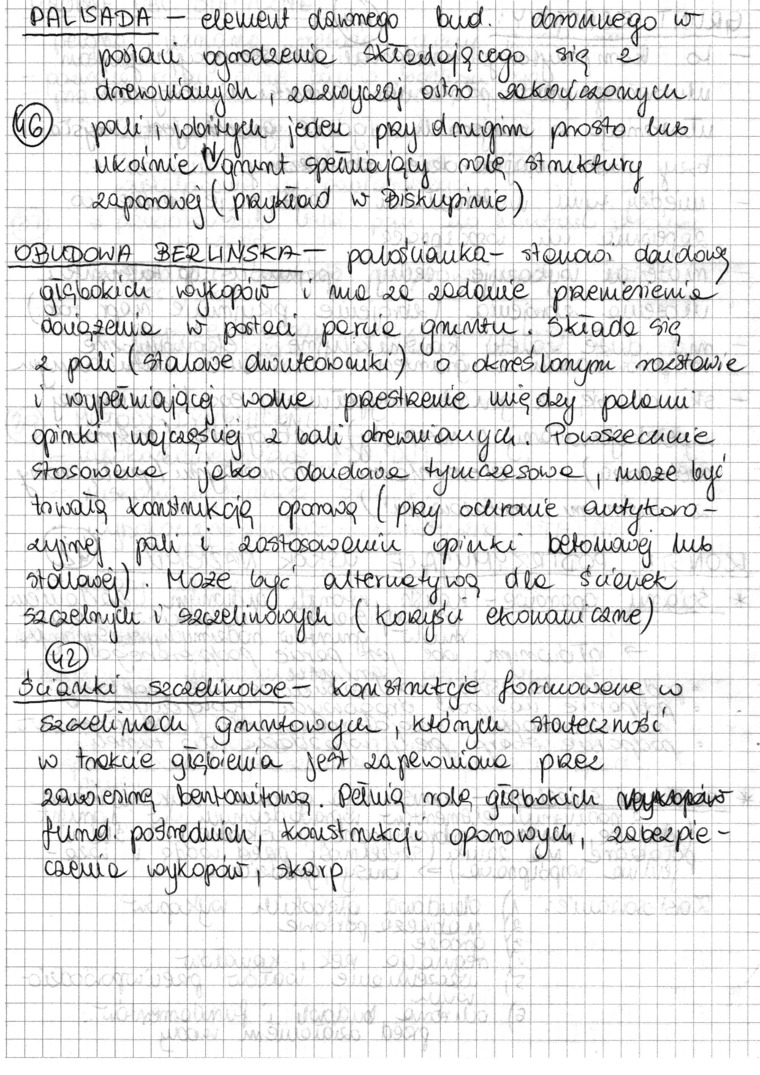 PALISADA – element dawnego bud. obronnego w
postaci ogrodzenia składającego się z
drewnianych, zazwyczaj ostro zakończonych
46 pali, wbitych jeden przy drugim prosto lub
ukośnie w grunt spełniający rolę struktury
zaporowej (przykład w Biskupinie)
OBUDOWA BERLIŃSKA – palościanka – stanowi obudowę
głębokich wykopów i ma za zadanie przeniesienie
obciążenia w postaci parcia gruntu. Składa się
z pali (stalowe dwuteowniki) o określonym rozstawie
i wypełniającej wolne przestrzenie między palami
opinki, najczęściej z bali drewnianych. Powszechnie
stosowana jako obudowa tymczasowa, może być
trwałą konstrukcją oporową (przy ochronie antykoro-
zyjnej pali i zastosowaniu opinki betonowej lub
stalowej). Może być alternatywą dla ścianek
szczelnych i szczelinowych (korzyści ekonomiczne)
42
Ścianki szczelinowe – konstrukcje formowane w
szczelinach gruntowych, których stateczność
w trakcie głębienia jest zapewniona przez
zawiesiną bentonitową. Pełnią rolę głębokich wykopów
fund. pośrednich, konstrukcji oporowych, zabezpie-
czenia wykopów, skarp